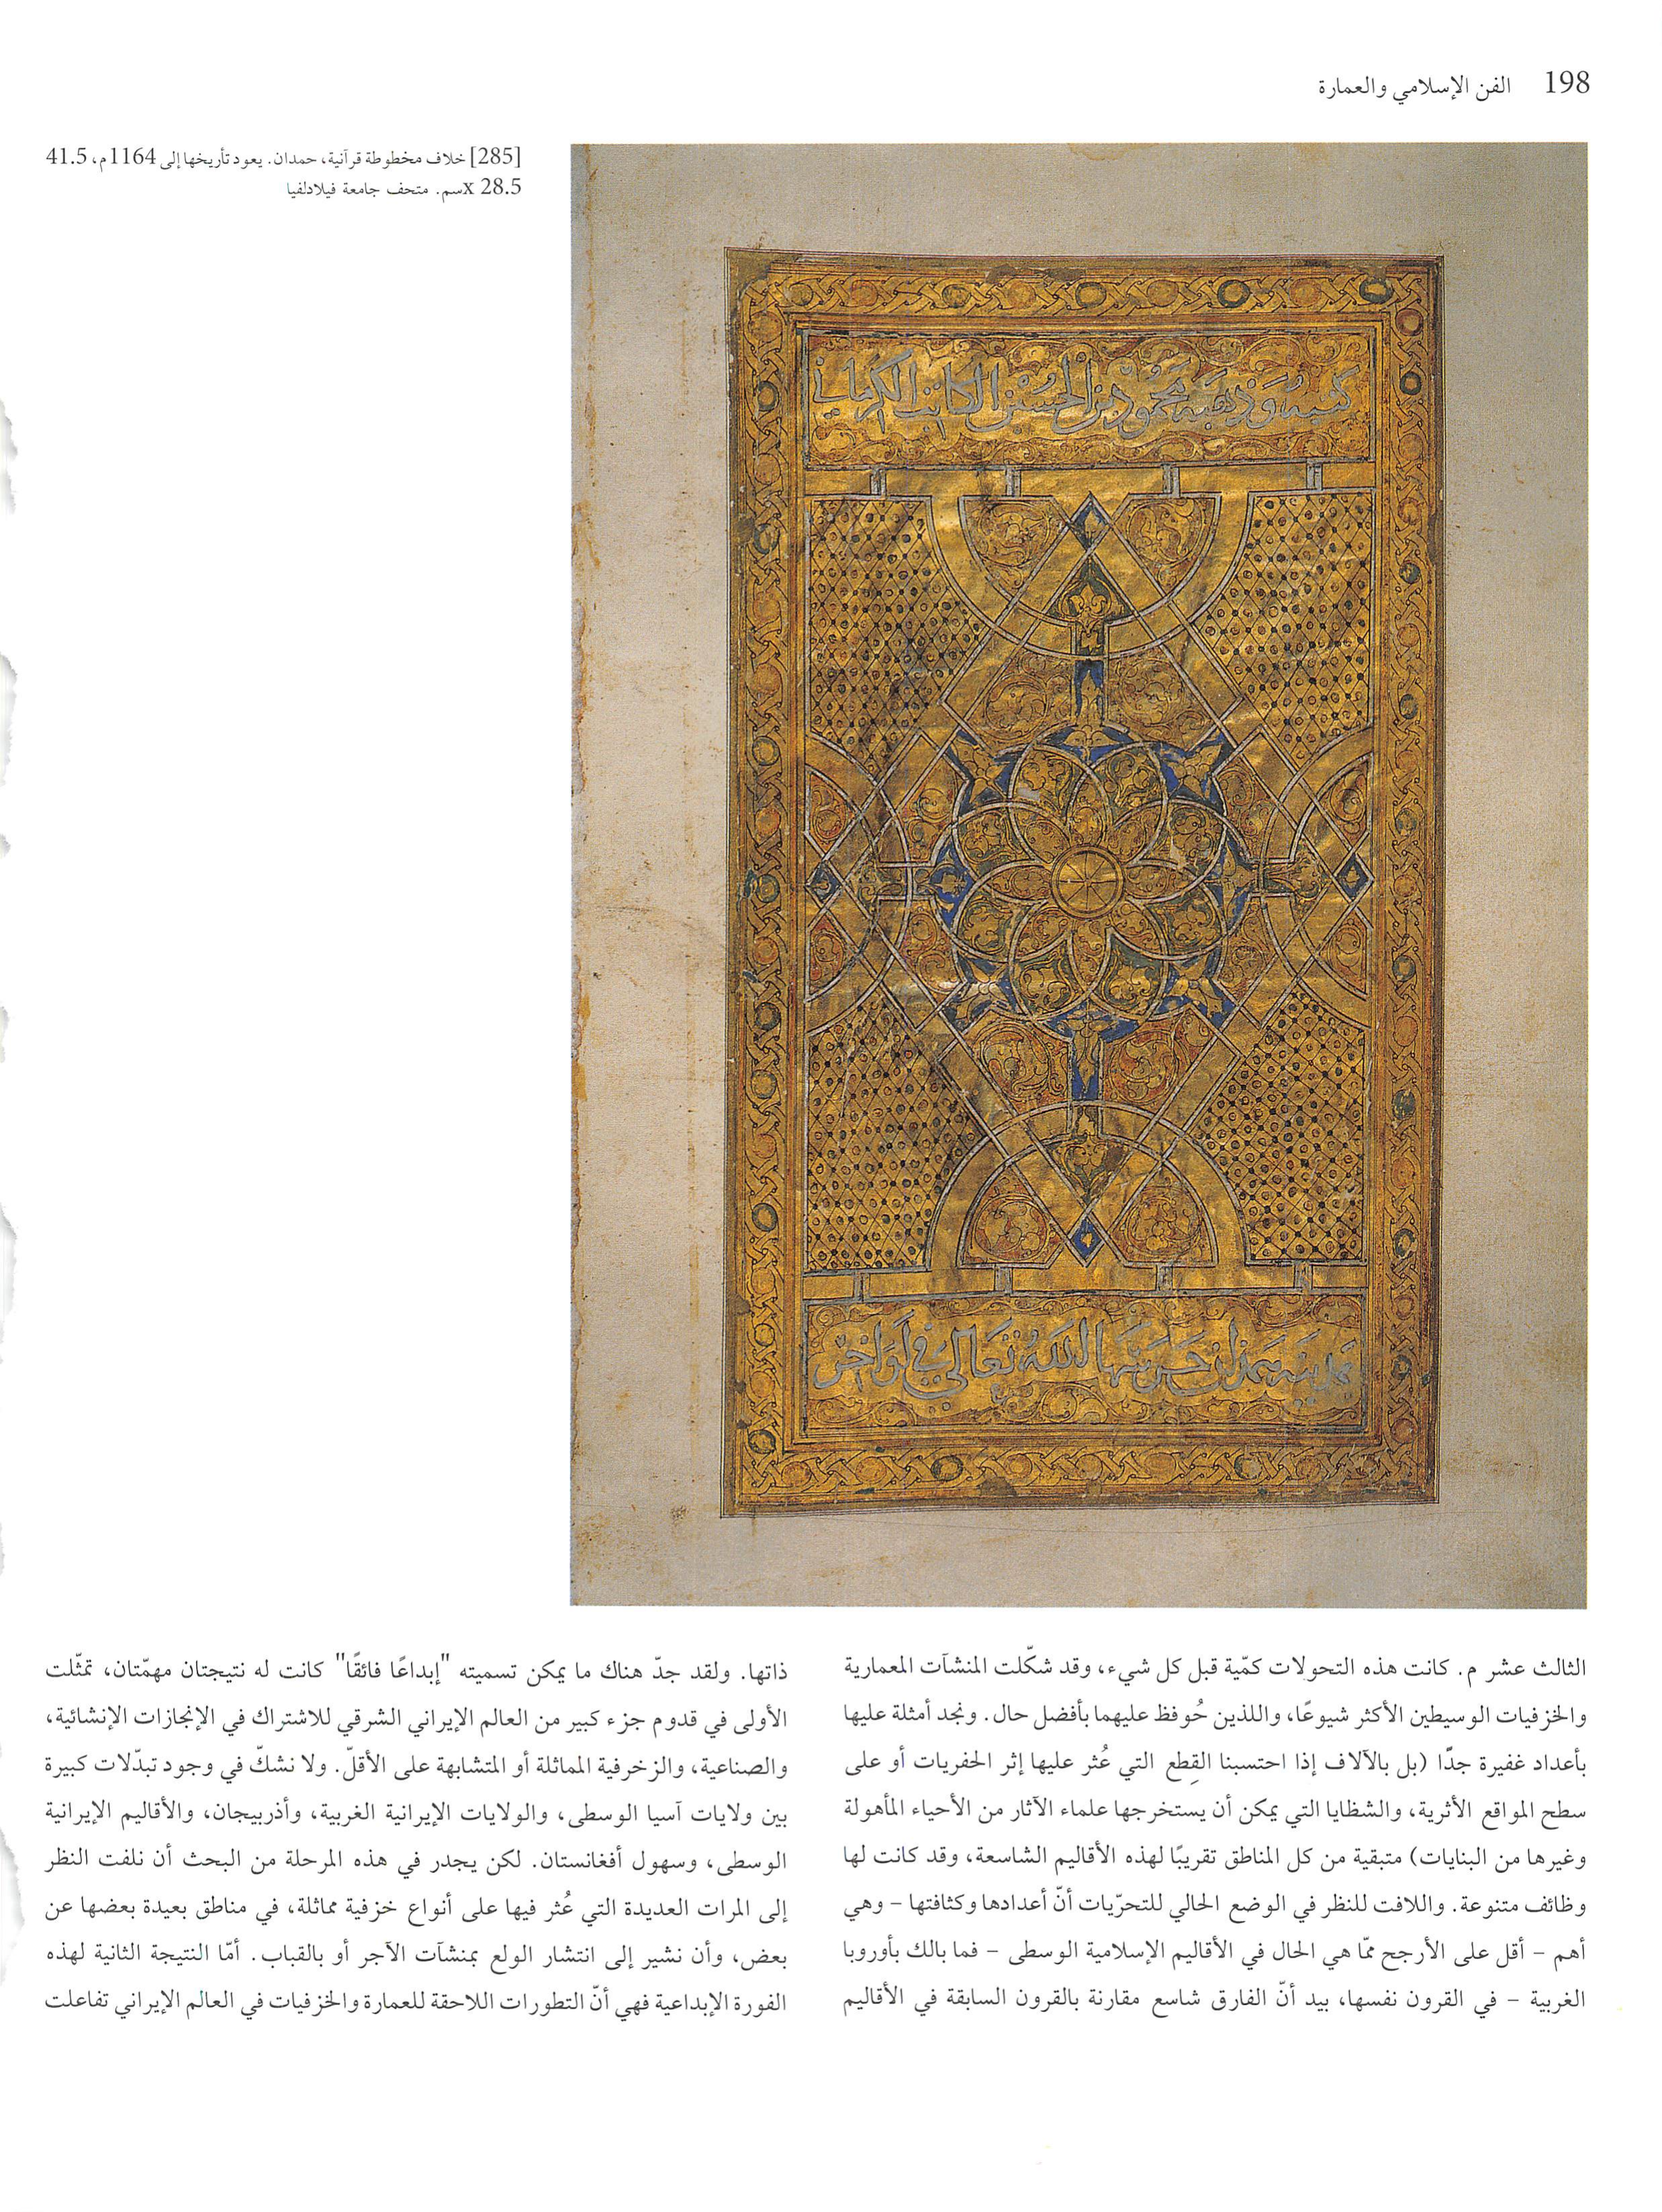 198 الفن الإسلامي والعمارة
[285] خلاف مخطوطة قرآنية، حمدان. يعود تأريخها إلى 1164م، 41.5
x 28.5سم. متحف جامعة فيلادلفيا
كتبه وذهبه محمود بن الحسين الكاتب الكرماني
بمدينة همذان حرسها الله تعالى في أواخر
الثالث عشر م. كانت هذه التحولات كمّية قبل كل شيء، وقد شكّلت المنشآت المعمارية
والخزفيات الوسيطين الأكثر شيوعًا، واللذين حُوفظ عليهما بأفضل حال. ونجد أمثلة عليها
بأعداد غفيرة جدًّا (بل بالآلاف إذا احتسبنا القِطع التي عُثر عليها إثر الحفريات أو على
سطح المواقع الأثرية، والشظايا التي يمكن أن يستخرجها علماء الآثار من الأحياء المأهولة
وغيرها من البنايات) متبقية من كل المناطق تقريبًا لهذه الأقاليم الشاسعة، وقد كانت لها
وظائف متنوعة. واللافت للنظر في الوضع الحالي للتحرّيات أنّ أعدادها وكثافتها – وهي
أهم – أقل على الأرجح ممّا هي الحال في الأقاليم الإسلامية الوسطى – فما بالك بأوروبا
الغربية – في القرون نفسها، بيد أنّ الفارق شاسع مقارنة بالقرون السابقة في الأقاليم
ذاتها. ولقد جدّ هناك ما يمكن تسميته "إبداعًا فائقًا" كانت له نتيجتان مهمّتان، تمثّلت
الأولى في قدوم جزء كبير من العالم الإيراني الشرقي للاشتراك في الإنجازات الإنشائية،
والصناعية، والزخرفية المماثلة أو المتشابهة على الأقلّ. ولا نشكّ في وجود تبدّلات كبيرة
بين ولايات آسيا الوسطى، والولايات الإيرانية الغربية، وأذربيجان، والأقاليم الإيرانية
الوسطى، وسهول أفغانستان. لكن يجدر في هذه المرحلة من البحث أن نلفت النظر
إلى المرات العديدة التي عُثر فيها على أنواع خزفية مماثلة، في مناطق بعيدة بعضها عن
بعض، وأن نشير إلى انتشار الولع بمنشآت الآجر أو بالقباب. أمّا النتيجة الثانية لهذه
الفورة الإبداعية فهي أنّ التطورات اللاحقة للعمارة والخزفيات في العالم الإيراني تفاعلت